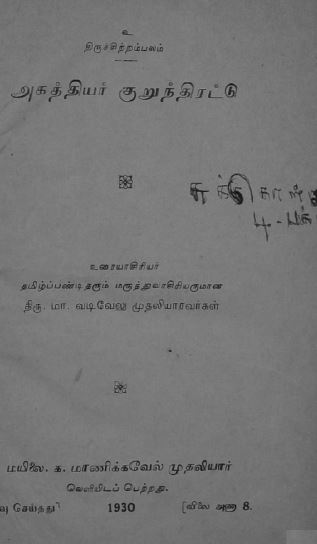 உ
திருச்சிற்றம்பலம்
அகத்தியர் குறுந்திரட்டு
உரையாசிரியர்
தமிழ்ப்பண்டிதரும் மருத்துவாசிரியருமான
திரு. மா. வடிவேலு முதலியாரவர்கள்
மயிலை. க. மாணிக்கவேல் முதலியார்
வெளியிடப் பெற்றது.
செய்தது] 1930 [விலை அணா 8.